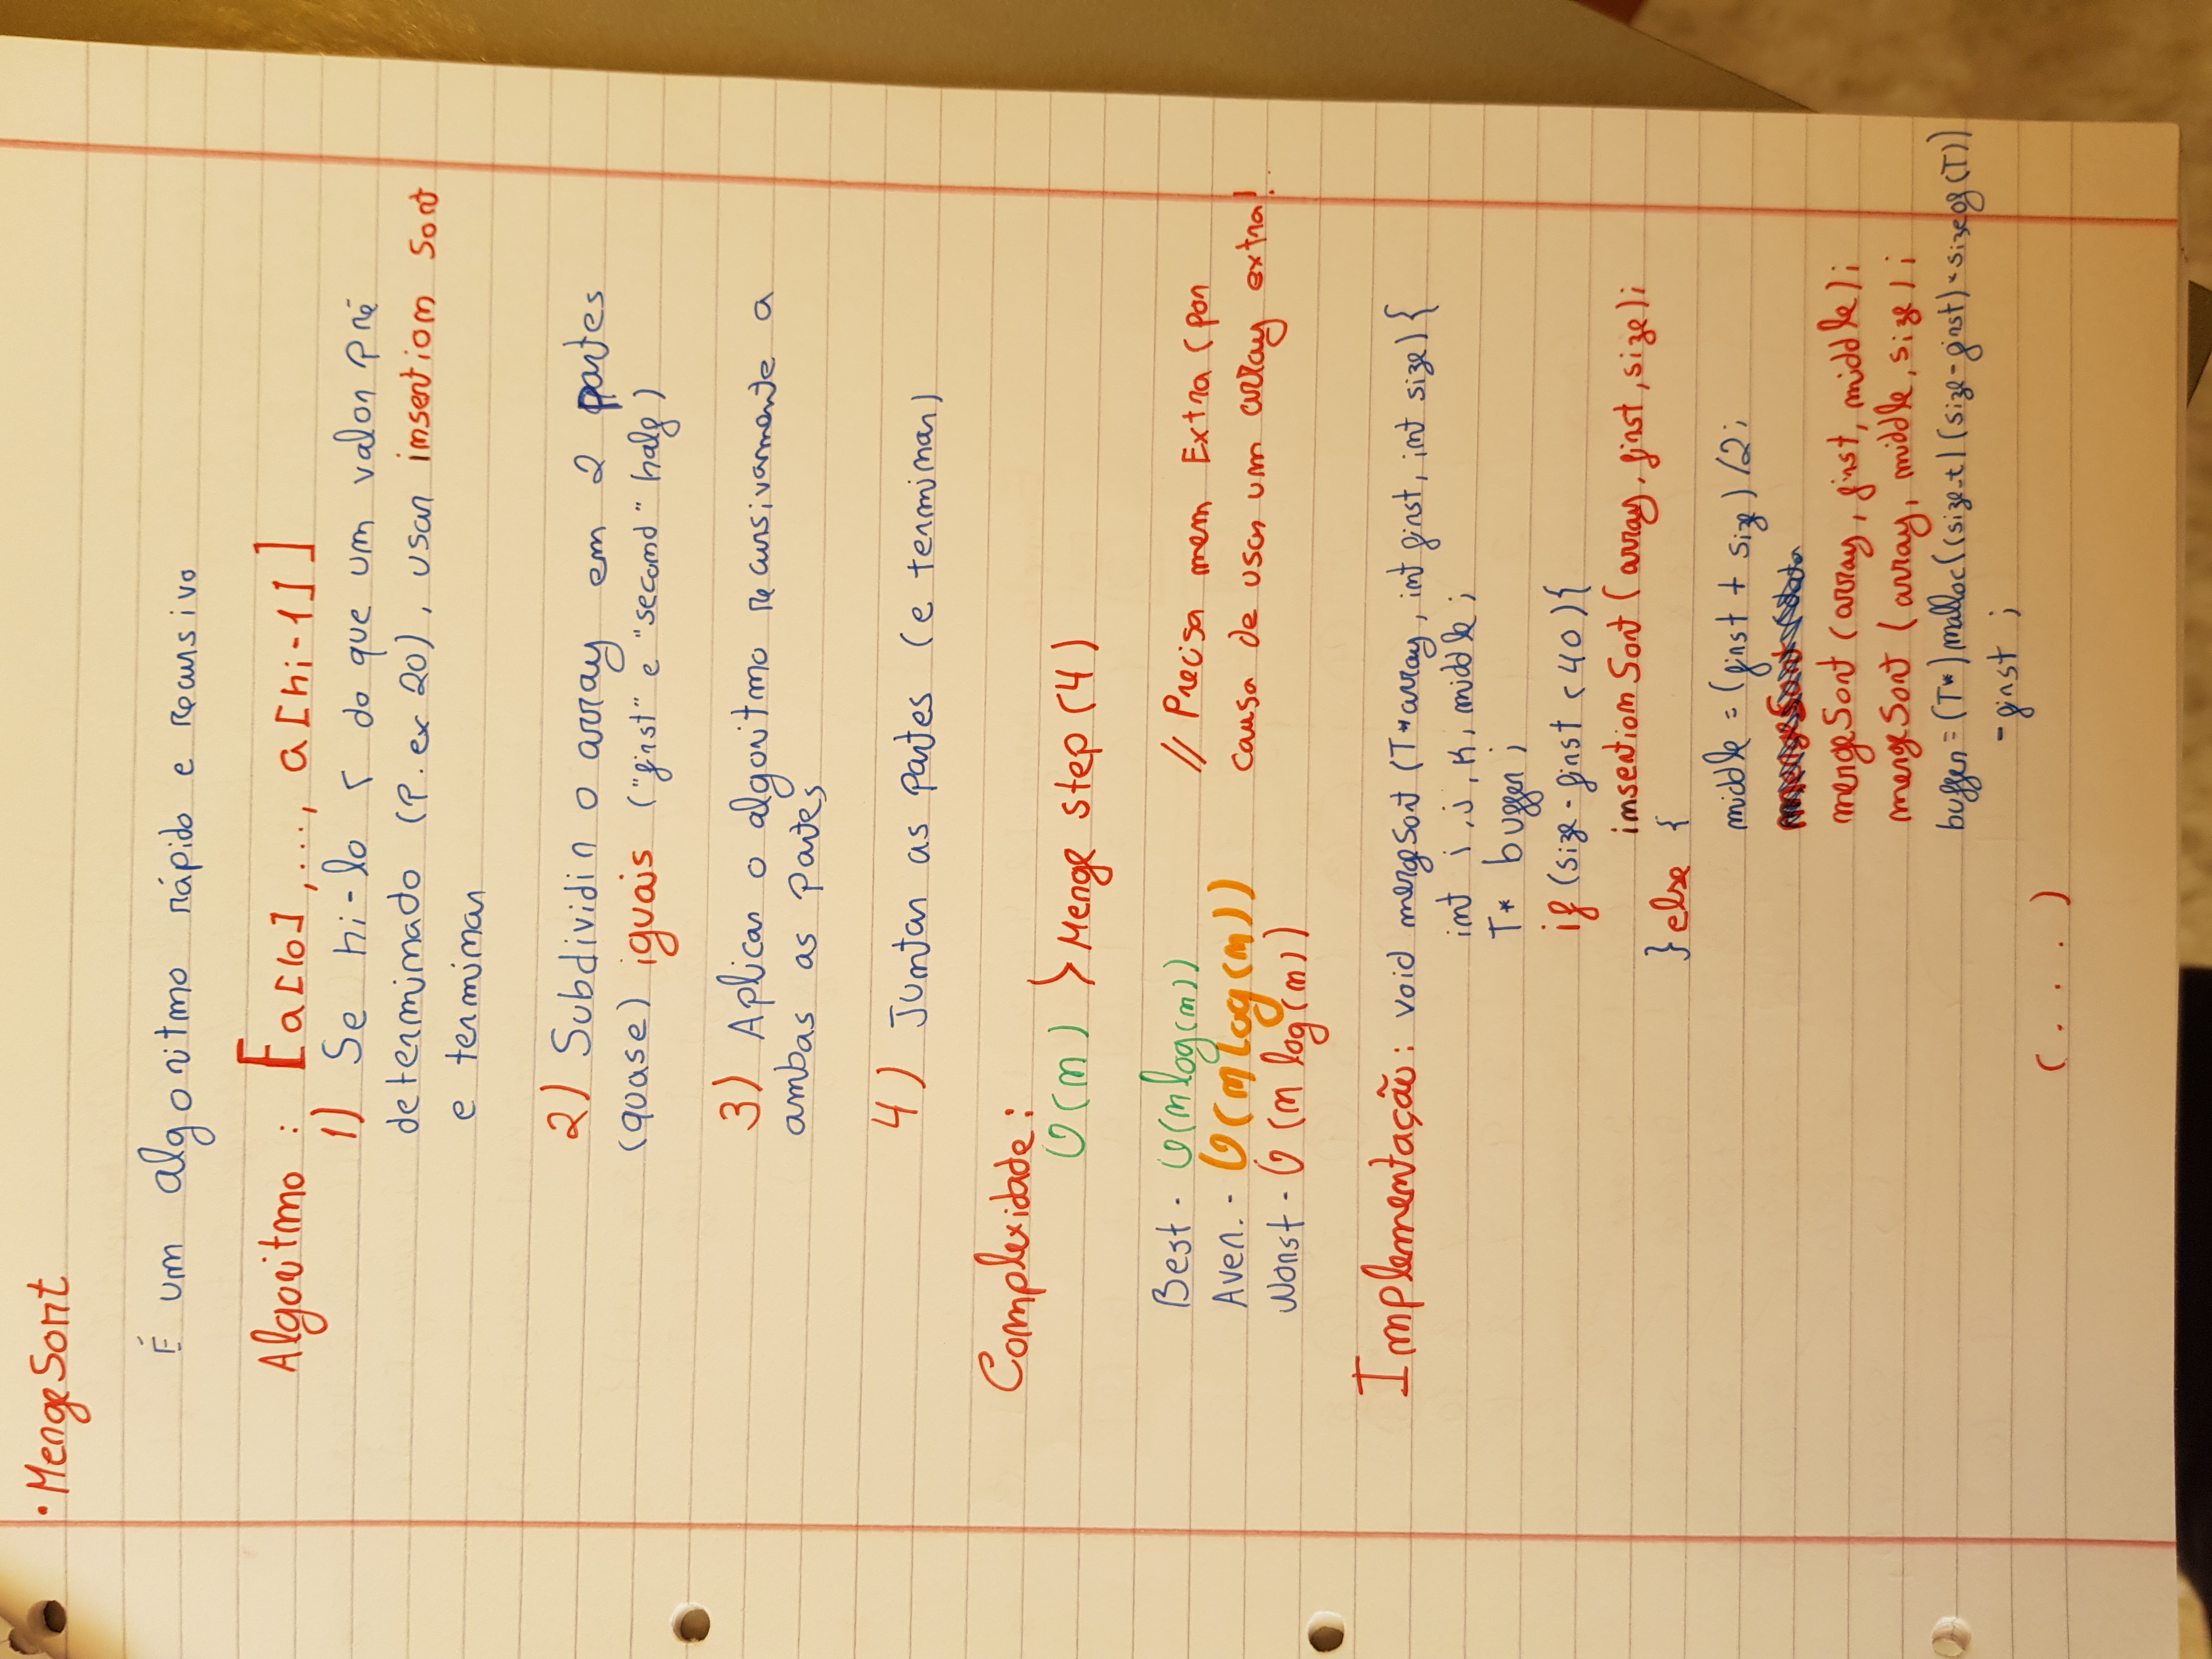 • MergeSort
É um algoritmo rápido e recursivo
Algoritmo : [a[lo], ..., a[hi-1]]
1) Se hi-lo < do que um valor pré
determinado (P. ex 20), usar insertion Sort
e terminar
2) Subdividir o array em 2 partes
(quase) iguais ("first" e "second" half)
3) Aplicar o algoritmo recursivamente a
ambas as partes
4) Juntar as partes (e terminar)
Complexidade:
O(n) > Merge step (4)
Best - O(n log(n))
Aver. - O(n log(n))
Worst - O(n log(n))
// Precisa mem Extra (por
causa de usar um array extra!
Implementação: void mergeSort (T* array, int first, int size) {
int i, j, K, middle;
T* buffer;
if (size - first < 40) {
insertionSort (array, first, size);
} else {
middle = (first + size) / 2;
mergeSort (array, first, middle);
mergeSort (array, middle, size);
buffer = (T*) malloc((size_t) (size-first) * sizeof(T))
- first ;
(. . . )